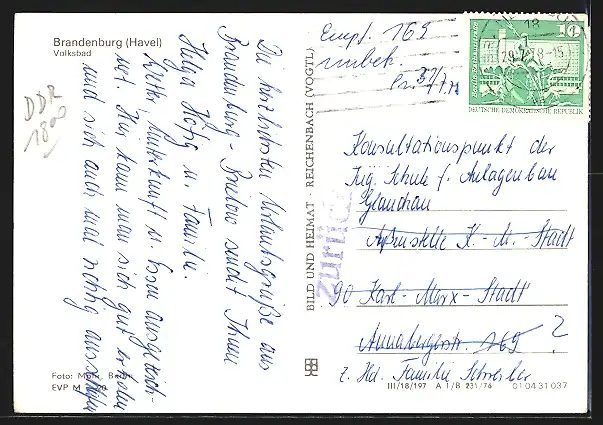 Brandenburg (Havel)
Volksbad
DDR
1800
Die herzlichsten Urlaubsgrüße aus
Brandenburg - Brielow sendet Ihnen
Helga Höfig u. Familie.
Wetter, Unterkunft u. Essen ausgezeich-
net. Hier kann man sich gut erholen
und sich auch mal richtig ausschlafen
Foto:
EVP M
BILD UND HEIMAT · REICHENBACH (VOGTL)
zurück
Empf. 169
unbek.
18
29.7.78-15
10
DEUTSCHE DEMOKRATISCHE REPUBLIK
Konsultationspunkt der
Ing. Schule f. Anlagenbau
Glauchau
Außenstelle K.-M.-Stadt
90 Karl-Marx-Stadt
Annabergerstr. 169 ?
z. Hd. Familie Schreiber
III/18/197 A 1/B 231/76 01 04 31 037